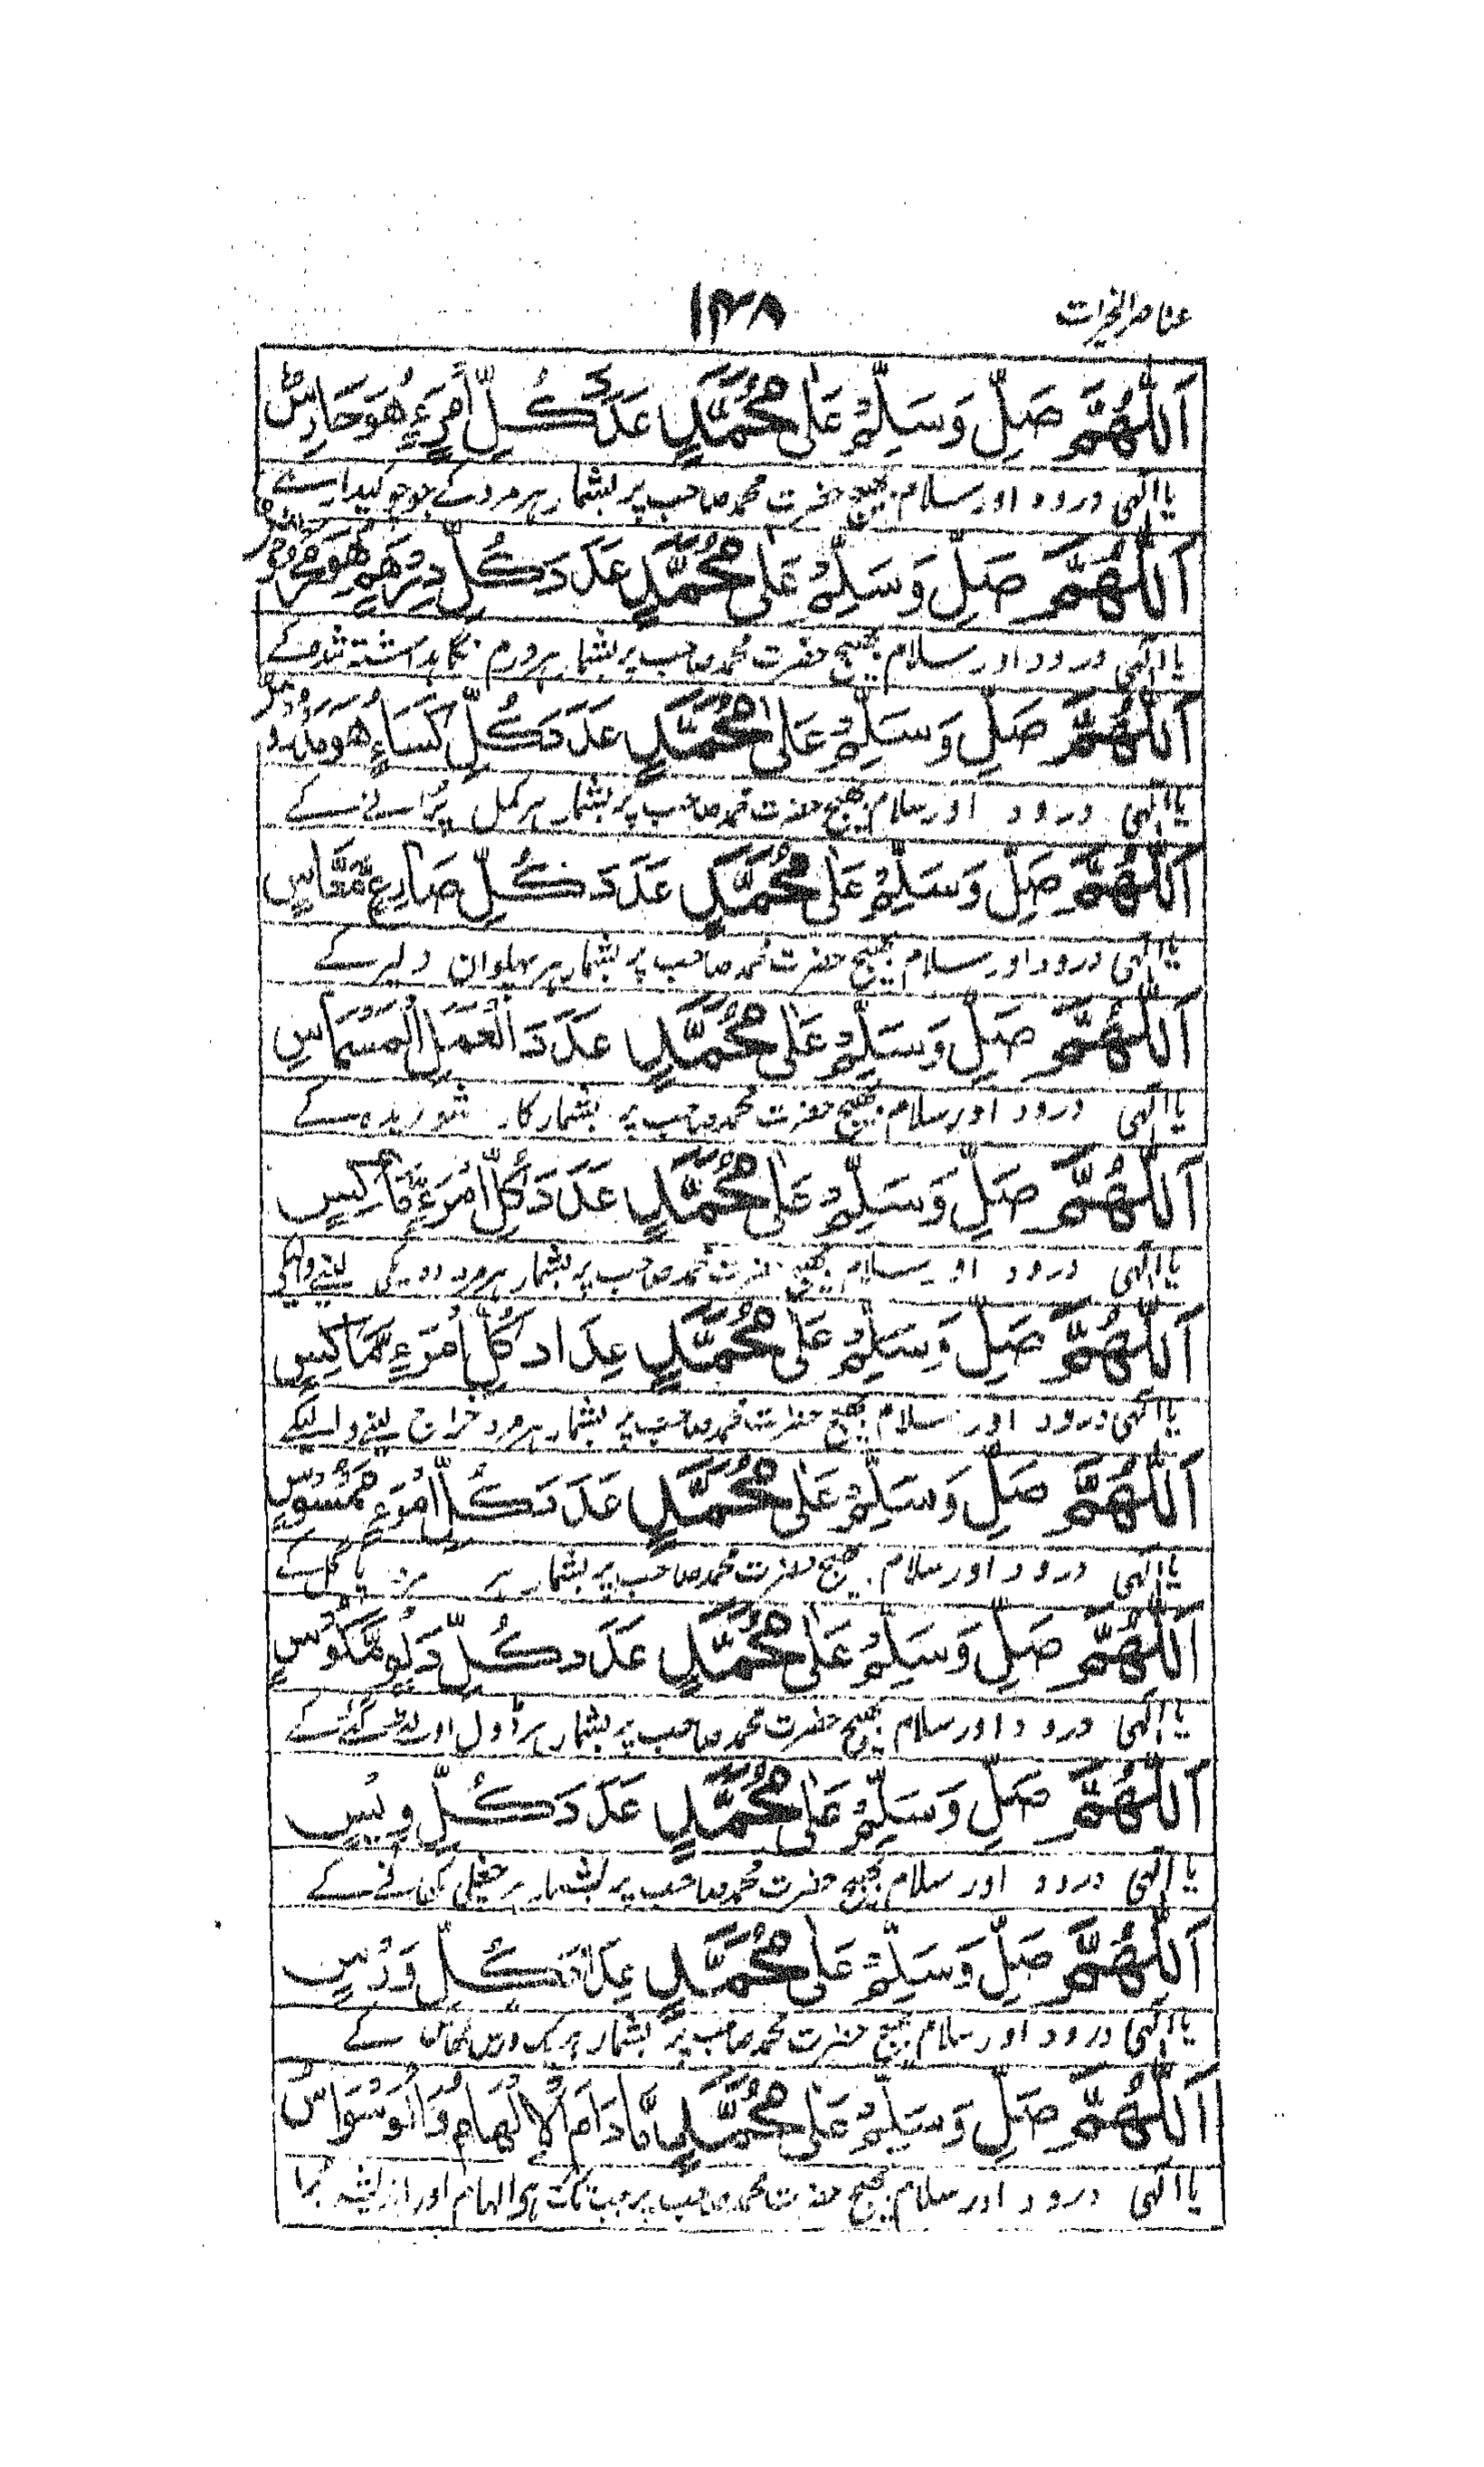 عناصر الخیرات
۱۳۸
اَللّٰهُمَّ صَلِّ وَسَلِّمْ عَلٰى مُحَمَّدٍ عَدَدَ كُلِّ امْرَءٍ هُوَ حَارِسٌ
یا الٰہی درود اور سلام بھیج حضرت محمد صاحب پر بشمار ہر مرد کے جو چوکیدار ہے
اَللّٰهُمَّ صَلِّ وَسَلِّمْ عَلٰى مُحَمَّدٍ عَدَدَ كُلِّ دِرْهَمٍ هُوَ مَحْرُوْسٌ
یا الٰہی درود اور سلام بھیج حضرت محمد صاحب پر بشمار ہر درم نگاہداشتہ شدہ کے
اَللّٰهُمَّ صَلِّ وَسَلِّمْ عَلٰى مُحَمَّدٍ عَدَدَ كُلِّ كِسَاءٍ هُوَ مَدْرُوْسٌ
یا الٰہی درود اور سلام بھیج حضرت محمد صاحب پر بشمار ہر کمل پرانے کے
اَللّٰهُمَّ صَلِّ وَسَلِّمْ عَلٰى مُحَمَّدٍ عَدَدَ كُلِّ صَارِعٍ مَّعَّاسٍ
یا الٰہی درود اور سلام بھیج حضرت محمد صاحب پر بشمار ہر پہلوان دلیر کے
اَللّٰهُمَّ صَلِّ وَسَلِّمْ عَلٰى مُحَمَّدٍ عَدَدَ الْعَمَلِ الْمَسْمَاسِ
یا الٰہی درود اور سلام بھیج حضرت محمد صاحب پر بشمار کار شوریدہ کے
اَللّٰهُمَّ صَلِّ وَسَلِّمْ عَلٰى مُحَمَّدٍ عَدَدَ كُلِّ امْرَءٍ مَّاكِسٍ
یا الٰہی درود اور سلام بھیج حضرت محمد صاحب پر بشمار ہر مرد لینے والیکے
اَللّٰهُمَّ صَلِّ وَسَلِّمْ عَلٰى مُحَمَّدٍ عِدَادَ كُلِّ امْرَءٍ مَّمَاكِسٍ
یا الٰہی درود اور سلام بھیج حضرت محمد صاحب پر بشمار ہر مرد خراج لینے والیکے
اَللّٰهُمَّ صَلِّ وَسَلِّمْ عَلٰى مُحَمَّدٍ عَدَدَ كُلِّ امْرَءٍ مَّمْسُوْسٍ
یا الٰہی درود اور سلام بھیج حضرت محمد صاحب پر بشمار پاگل کے
اَللّٰهُمَّ صَلِّ وَسَلِّمْ عَلٰى مُحَمَّدٍ عَدَدَ كُلِّ دَلْوٍ مَّنْكُوْسٍ
یا الٰہی درود اور سلام بھیج حضرت محمد صاحب پر بشمار ہر ڈول اوندھے کئے گئے کے
اَللّٰهُمَّ صَلِّ وَسَلِّمْ عَلٰى مُحَمَّدٍ عَدَدَ كُلِّ وِيْسٍ
یا الٰہی درود اور سلام بھیج حضرت محمد صاحب پر بشمار ہر کے
اَللّٰهُمَّ صَلِّ وَسَلِّمْ عَلٰى مُحَمَّدٍ عِدَادَ كُلِّ وَرْسٍ
یا الٰہی درود اور سلام بھیج حضرت محمد صاحب پر بشمار ہر یک ورس گھاس کے
اَللّٰهُمَّ صَلِّ وَسَلِّمْ عَلٰى مُحَمَّدٍ مَّا دَامَ الْاِلْهَامُ وَالْوَسْوَاسُ
یا الٰہی درود اور سلام بھیج حضرت محمد صاحب پر جب تک ہو الہام اور اندیشہ برا